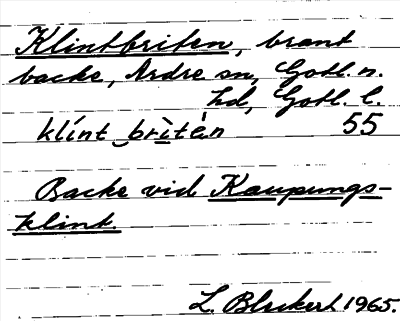 Klintbriten, brant
backe, Ardre sn, Gotl. n.
hd, Gotl. l.
klínt‿brìtèn 55
Backe vid Kaupungs-
klint.
L. 1965.